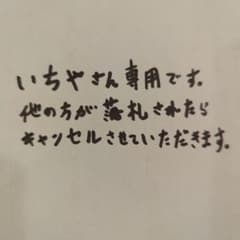 いちやさん専用です。
他の方が落札されたら
キャンセルさせていただきます。